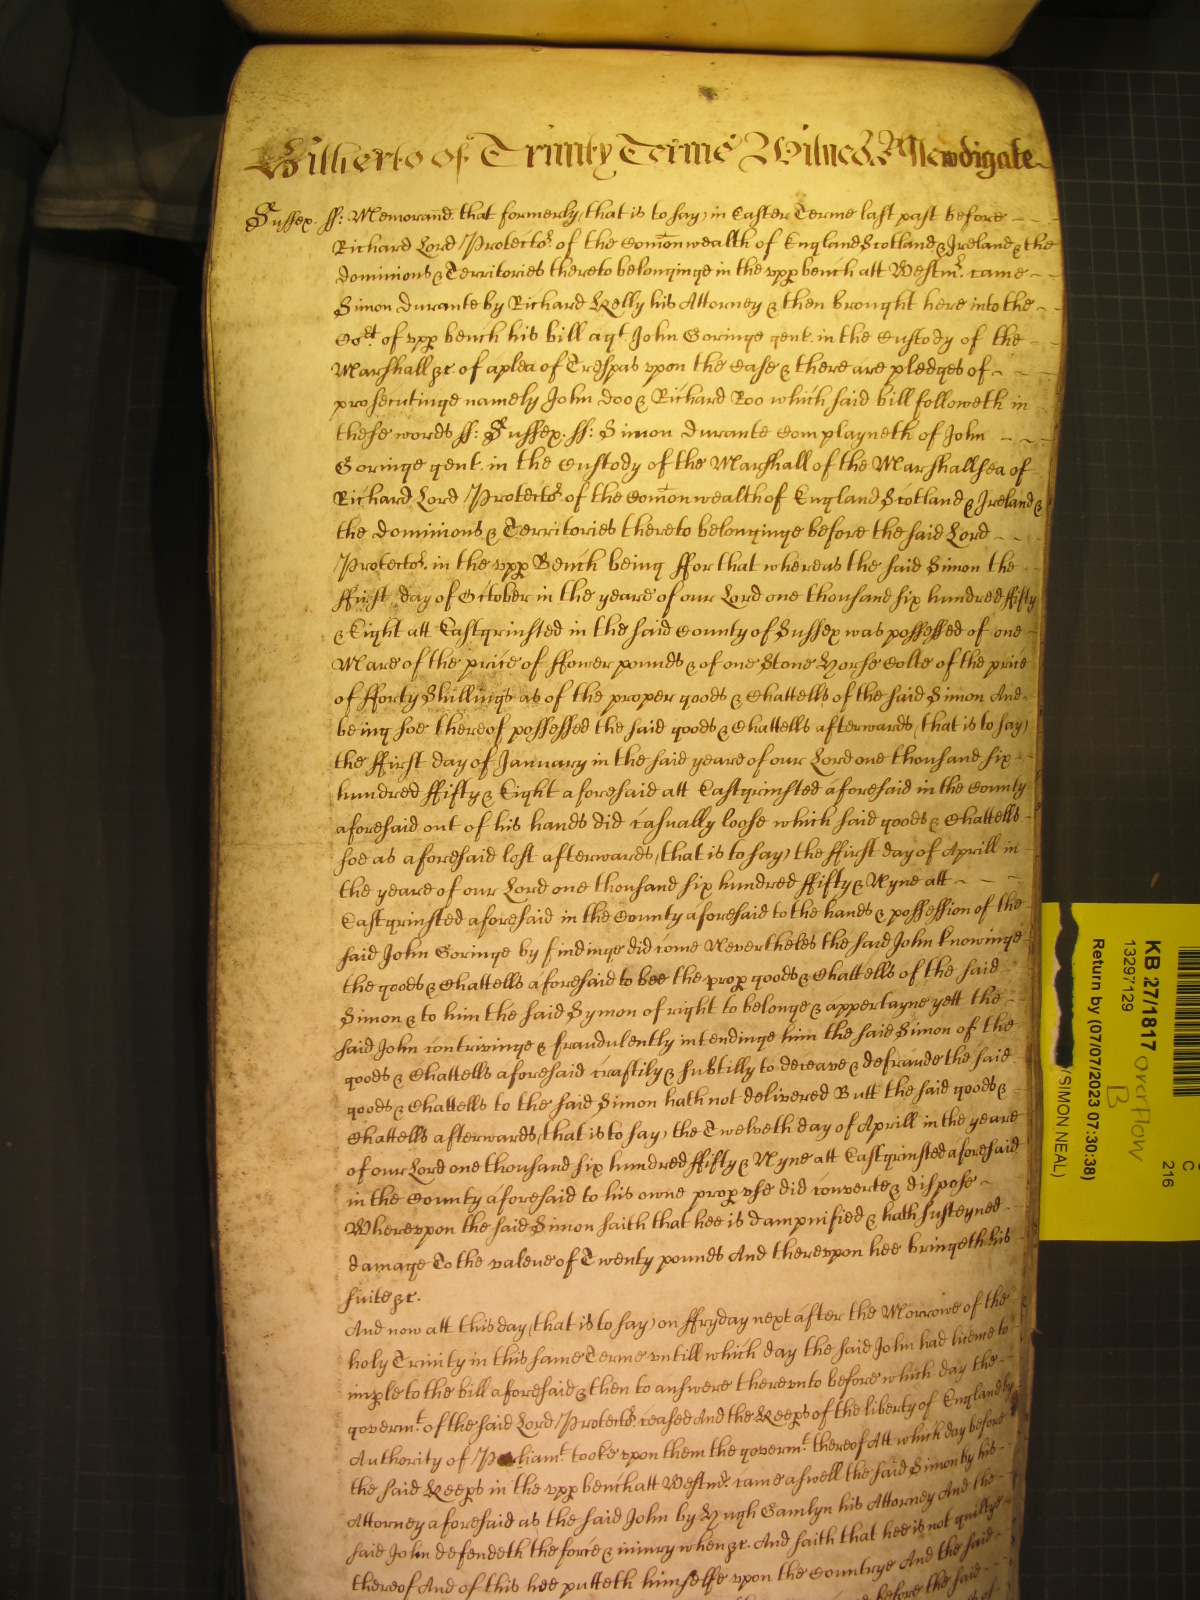 Hitherto of Trinity Terme Witnes. R Newdigate
Sussex. ss: Memorand. that formerly (that is to say) in Easter Terme last past before
Richard Lord Protector. of the Com̄onwealth of England Scotland & Ireland & the
dominions & Territories thereto belonginge in the upp bench att Westmr. came
Simon durante by Richard Kelly his Attorney & then brought here into the
Cort. of upp bench his bill agt. John Goringe gent. in the Custody of the
Marshall &c. of a plea of Trespas upon the Case & there are pledges of
prosecutinge namely John doo & Richard Roo which said bill followeth in
these words ss: Sussex. ss: Simon durante Complayneth of John
Goringe gent. in the Custody of the Marshall of the Marshallsea of
Richard Lord Protector. of the Com̄onwealth of England Scotland & Ireland &
the dominions & Territories thereto belonginge before the said Lord
Protector. in the upp Bench being ffor that whereas the said Simon the
ffirst day of October in the yeare of our Lord one thousand six hundred ffifty
& Eight att Eastgrinsted in the said County of Sussex was possessed of one
Mare of the price of ffower pounds & of one Stone Horse Colte of the price
of fforty Shillings as of the proper goods & Chattells of the said Simon And
being soe thereof possessed the said goods & Chattells afterwards (that is to say)
the ffirst day of January in the said yeare of our Lord one thousand six
hundred ffifty & Eight aforesaid att Eastgrinsted aforesaid in the County
aforesaid out of his hands did casually loose which said goods & Chattells
soe as aforesaid lost afterwards (that is to say) the ffirst day of Aprill in
the yeare of our Lord one thousand six hundred ffifty & Nyne att
Eastgrinsted aforesaid in the County aforesaid to the hands & possession of the
said John Goringe by findinge did come Neverthelés the said John knowinge
the goods & Chattells aforesaid to bee the prop goods & Chattells of the said
Simon & to him the said Symon of right to belonge & appertayne yett the
said John contrivinge & fraudulently intendinge him the said Simon of the
goods & Chattells aforesaid craftily & subtilly to deceave & defraude the said
goods & Chattells to the said Simon hath not delivered Butt the said goods &
Chattells afterwards (that is to say) the Twelveth day of Aprill in the yeare
of our Lord one thousand six hundred ffifty & Nyne att Eastgrinsted aforesaid
in the County aforesaid to his owne prop use did converte & dispose
Whereupon the said Simon saith that hee is dampnified & hath susteyned
damage To the valeue of Twenty pounds And thereupon hee bringeth his
suite &c.
And now att this day (that is to say) on ffryday next after the Morrowe of the
holy Trinity in this same Terme untill which day the said John had licence to
imple to the bill aforesaid & then to answere thereunto before which day the
govermt. of the said Lord Protector. ceased And the Keeps of the liberty of England by
Authority of Parliamt. tooke upon them the govermt. thereof Att which day before
the said Keeps in the upp bench att Westmr. came aswell the said Simon by his
Attorney aforesaid as the said John by Hugh Gamlyn his Attorney And the
said John defendeth the force & iniury when &c. And saith that hee is not guiltye
thereof And of this hee putteth himselfe upon the Countrye And the said
before the said
KB 27/1817
13297129
Return by (07/07/2023 07:30:38)
/SIMON NEAL)
overflow
B
C
216